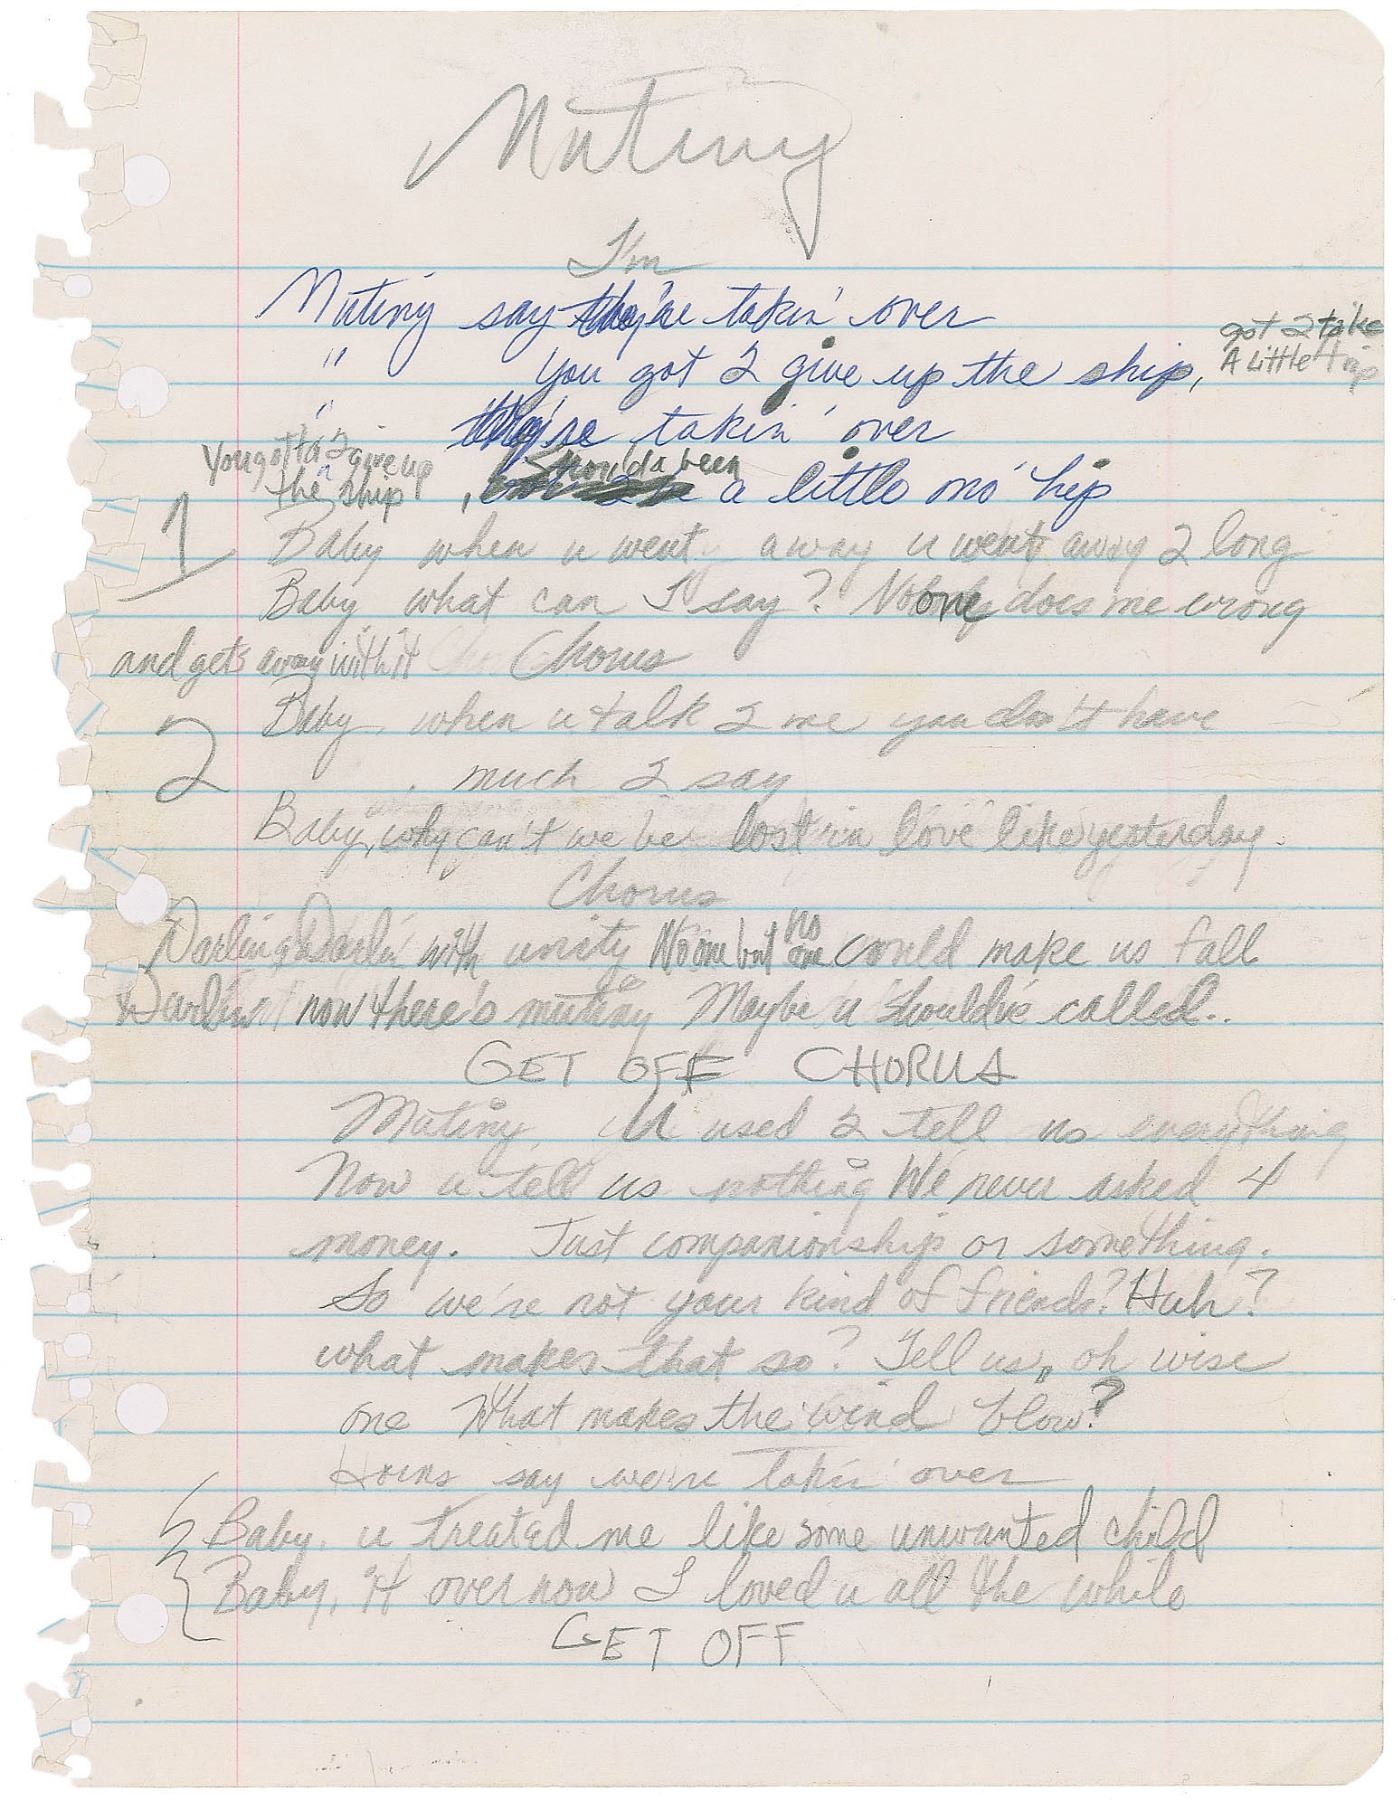 Mutiny
I'm
Mutiny say they're takin' over
" You got 2 give up the ship, got 2 take
A Little trip
" they're takin' over
You gotta 2 give up
the ship , Shoulda been a little mo' hip
1 Baby when u went away u went away 2 long
Baby what can I say? No one does me wrong
and gets away with it Chorus
2 Baby, when u talk 2 me you don't have
much 2 say
Baby, why can't we be lost in love like yesterday.
Chorus
Darling Darlin' with unity No one but no one could make us fall
Darlin' now there's mutiny Maybe u should've called..
GET OFF CHORUS
Mutiny, U used 2 tell us everything
Now u tell us nothing We never asked 4
money. Just companionship or something.
So we're not your kind of friends? Huh?
what makes that so? Tell us, oh wise
one What makes the wind blow?
Horns say we're takin' over
Baby, u treated me like some unwanted child
Baby, it over now I loved u all the while
GET OFF